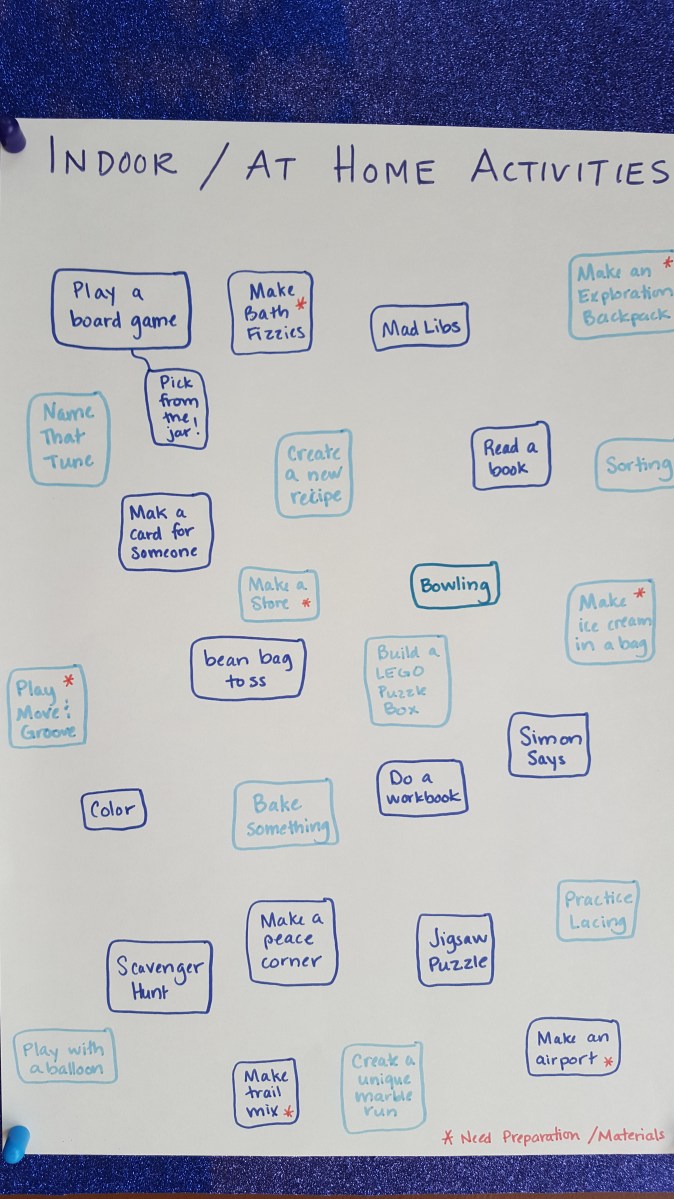 INDOOR / AT HOME ACTIVITIES
Play a
board game
Pick
from
the
jar!
Make
Bath *
Fizzies
Mad Libs
Make an *
Exploration
Backpack
Name
That
Tune
Create
a new
recipe
Read a
book
Sorting
Mak a
card for
someone
Make a
Store *
Bowling
Make *
ice cream
in a bag
bean bag
toss
Build a
LEGO
Puzzle
Box
Play *
Move &
Groove
Simon
Says
Color
Bake
something
Do a
workbook
Practice
Lacing
Make a
peace
corner
Jigsaw
Puzzle
Scavenger
Hunt
Play with
a balloon
Make
trail
mix *
Create a
unique
marble
run
Make an
airport *
* Need Preparation / Materials